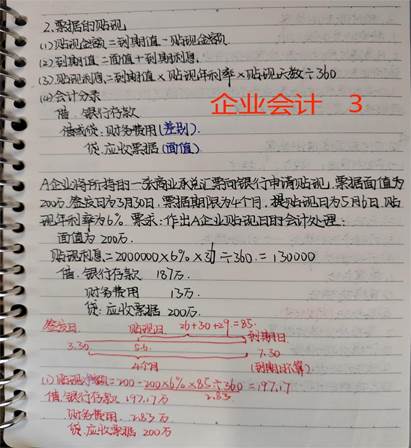 2.票据的贴现
(1)贴现金额=到期值-贴现金额
(2)到期值=面值+到期利息.
(3)贴现利息=到期值×贴现年利率×贴现天数÷360
(4)会计分录
企业会计 3
借:银行存款
借或贷:财务费用(差别).
贷:应收票据(面值)
A企业将所持的一张商业承兑汇票向银行申请贴现,票据面值为
200万.签发日为3月30日,票据期限为4个月,提贴现日为5月6日,贴
现年利率为6%.要求:作出A企业贴现日的会计处理:
面值为200万.
贴现利息=2000000×6%×÷360=130000
借:银行存款 187万.
财务费用 13万.
贷:应收票据 200万.
签发日. 贴现日. 26+30+29=85. 到期日.
3.30 5.6. 7.30
4个月 (到期日不算).
(1)贴现=200-200×6%×85÷360=197.17
2.83
借:银行存款 197.17万
财务费用 2.83万
贷:应收票据 200万